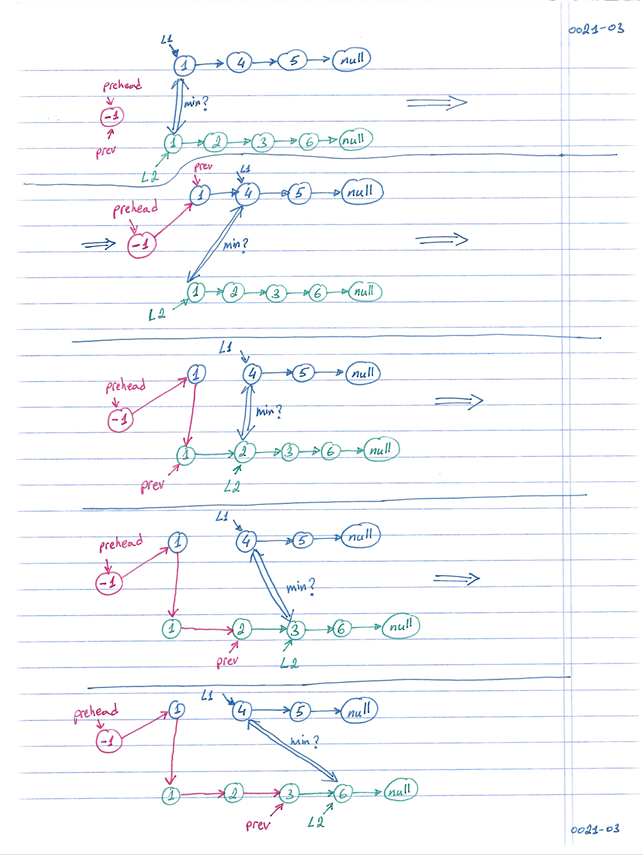 0021-03
L1
1 4 5 null
prehead
min?
-1
prev
1 2 3 6 null
L2
prev L1
1 4 5 null
prehead
-1
min?
1 2 3 6 null
L2
L1
1 4 5 null
prehead
-1
min?
1 2 3 6 null
prev L2
L1
1 4 5 null
prehead
-1
min?
1 2 3 6 null
prev L2
L1
1 4 5 null
prehead
-1
min?
1 2 3 6 null
prev L2
0021-03